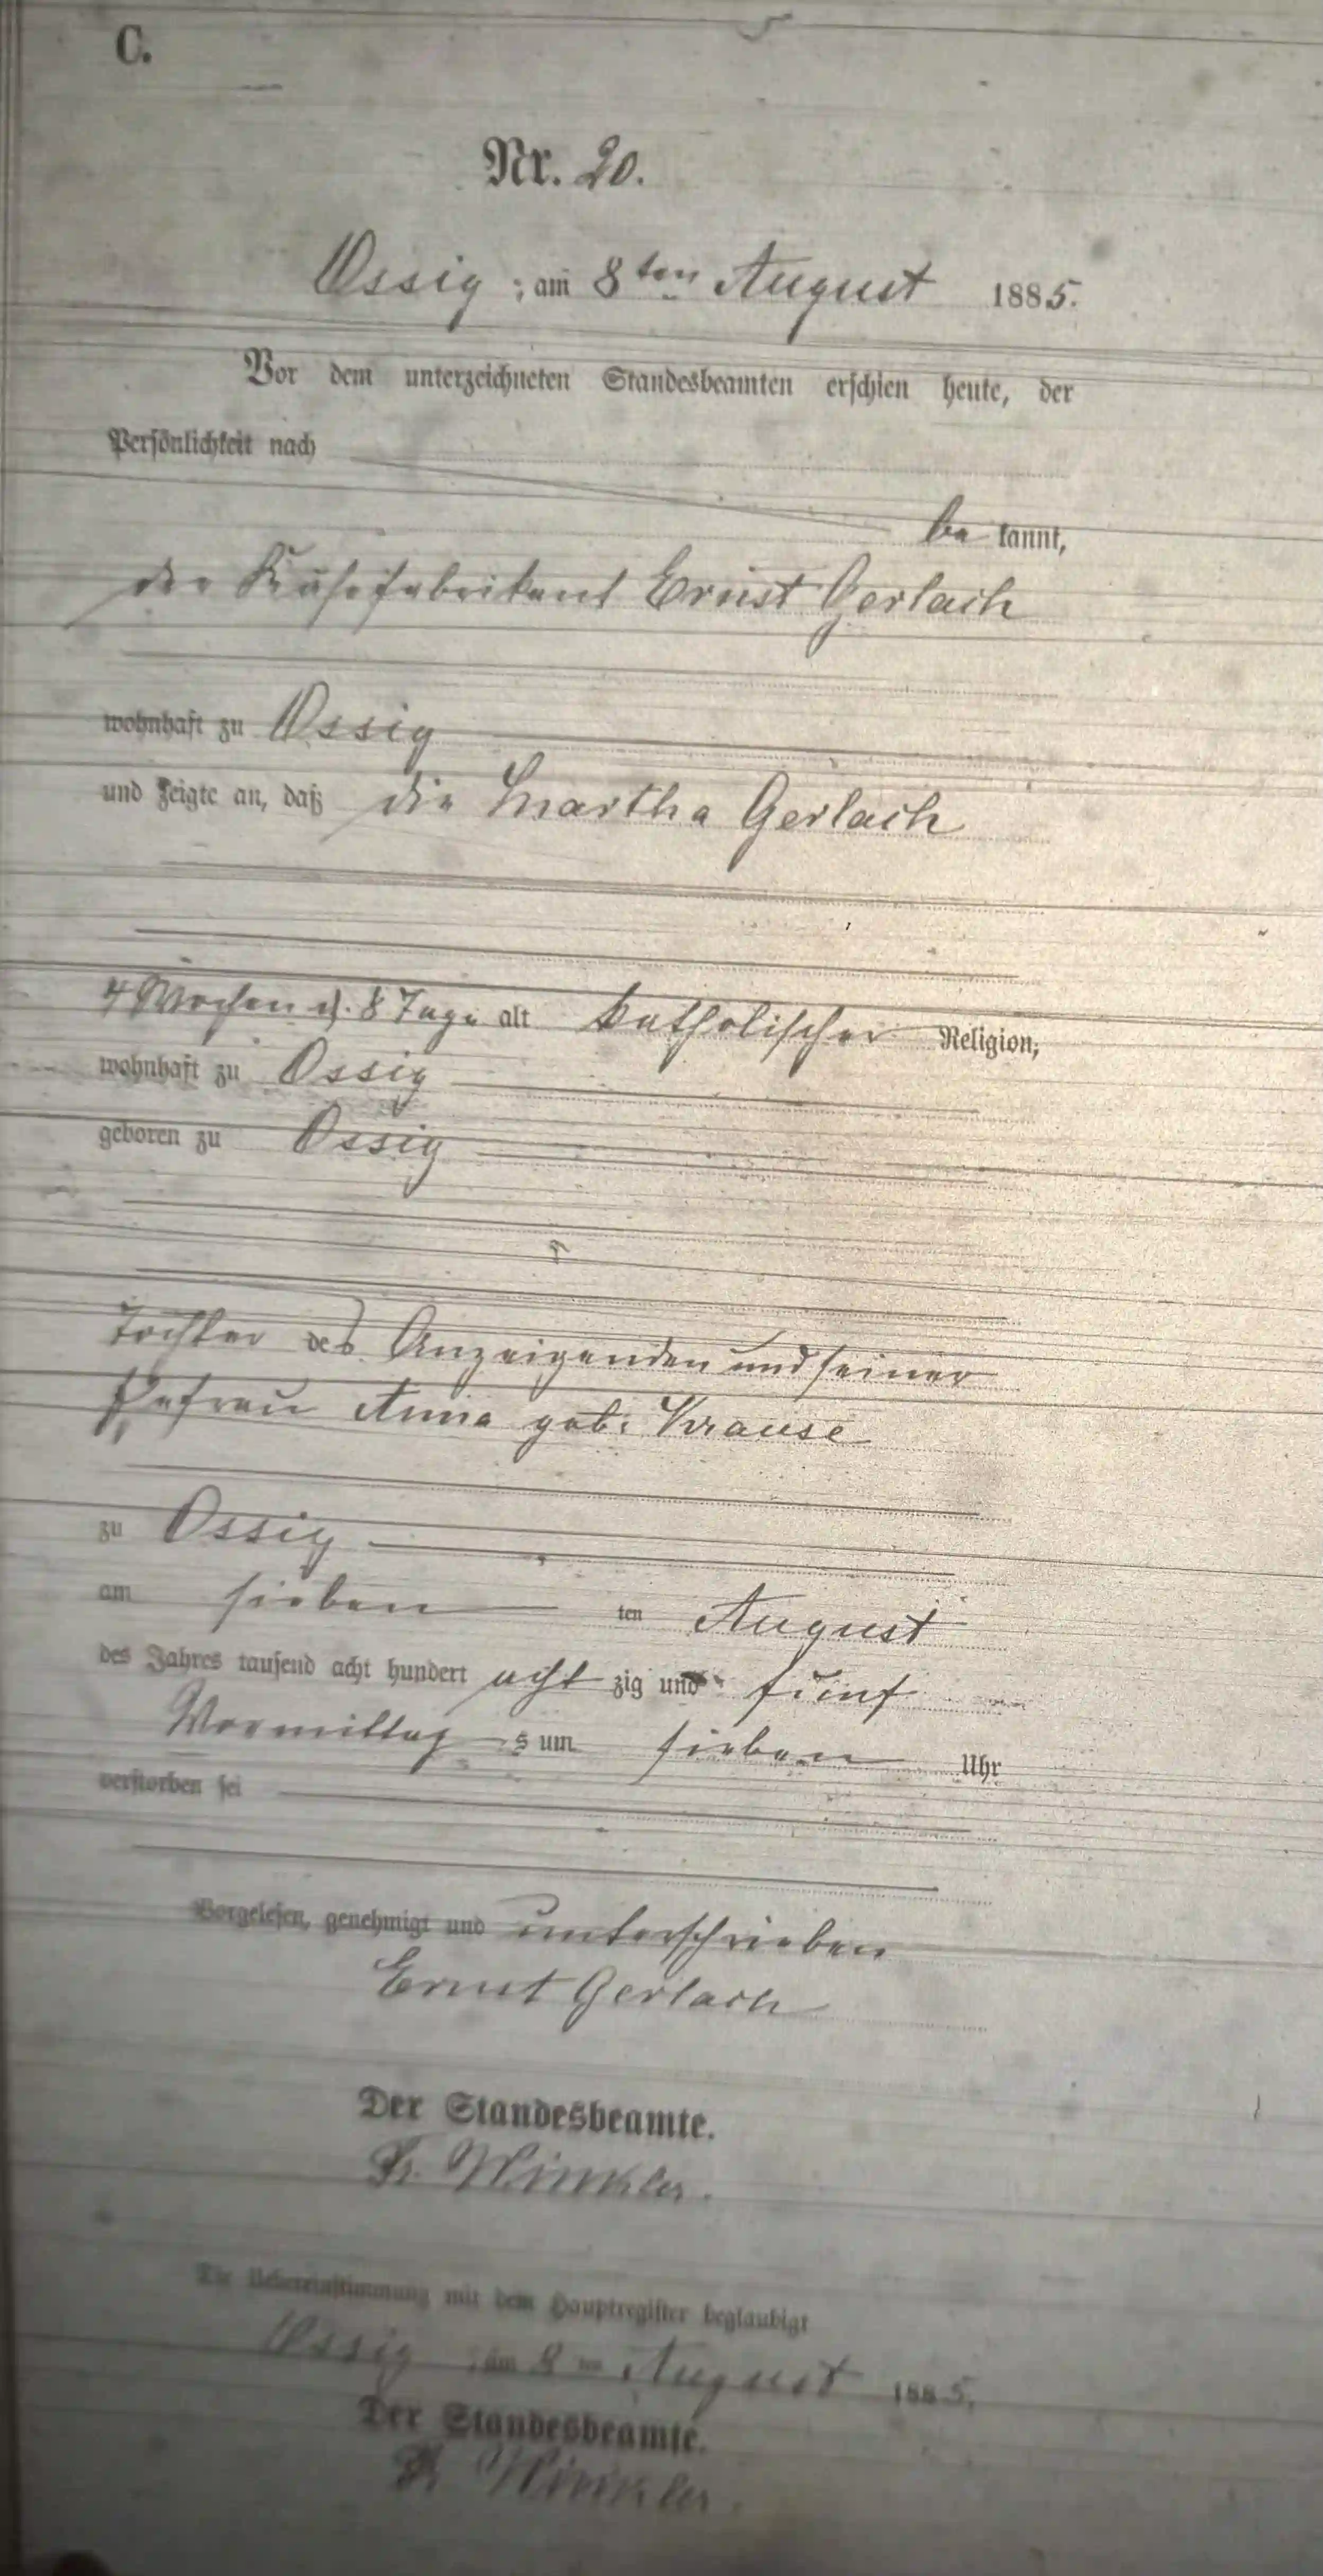 C.
Nr. 20.
Ossig, am 8ten August 1885.
Vor dem unterzeichneten Standesbeamten erschien heute, der
Persönlichkeit nach
be kannt,
der Käsefabrikant Ernst Gerlach
wohnhaft zu Ossig
und zeigte an, daß die Martha Gerlach
4 Wochen u. 8 Tage alt katholischer Religion,
wohnhaft zu Ossig
geboren zu Ossig
Tochter des Anzeigenden und seiner
Ehefrau Anna geb. Krause
zu Ossig
am sieben ten August
des Jahres tausend acht hundert acht zig und fünf
Vormittag s um sieben Uhr
verstorben sei
Vorgelesen, genehmigt und unterschrieben
Ernst Gerlach
Der Standesbeamte.
Winkler.
Die Uebereinstimmung mit dem Hauptregister beglaubigt
Ossig, am 8ten August 1885.
Der Standesbeamte.
Winkler.